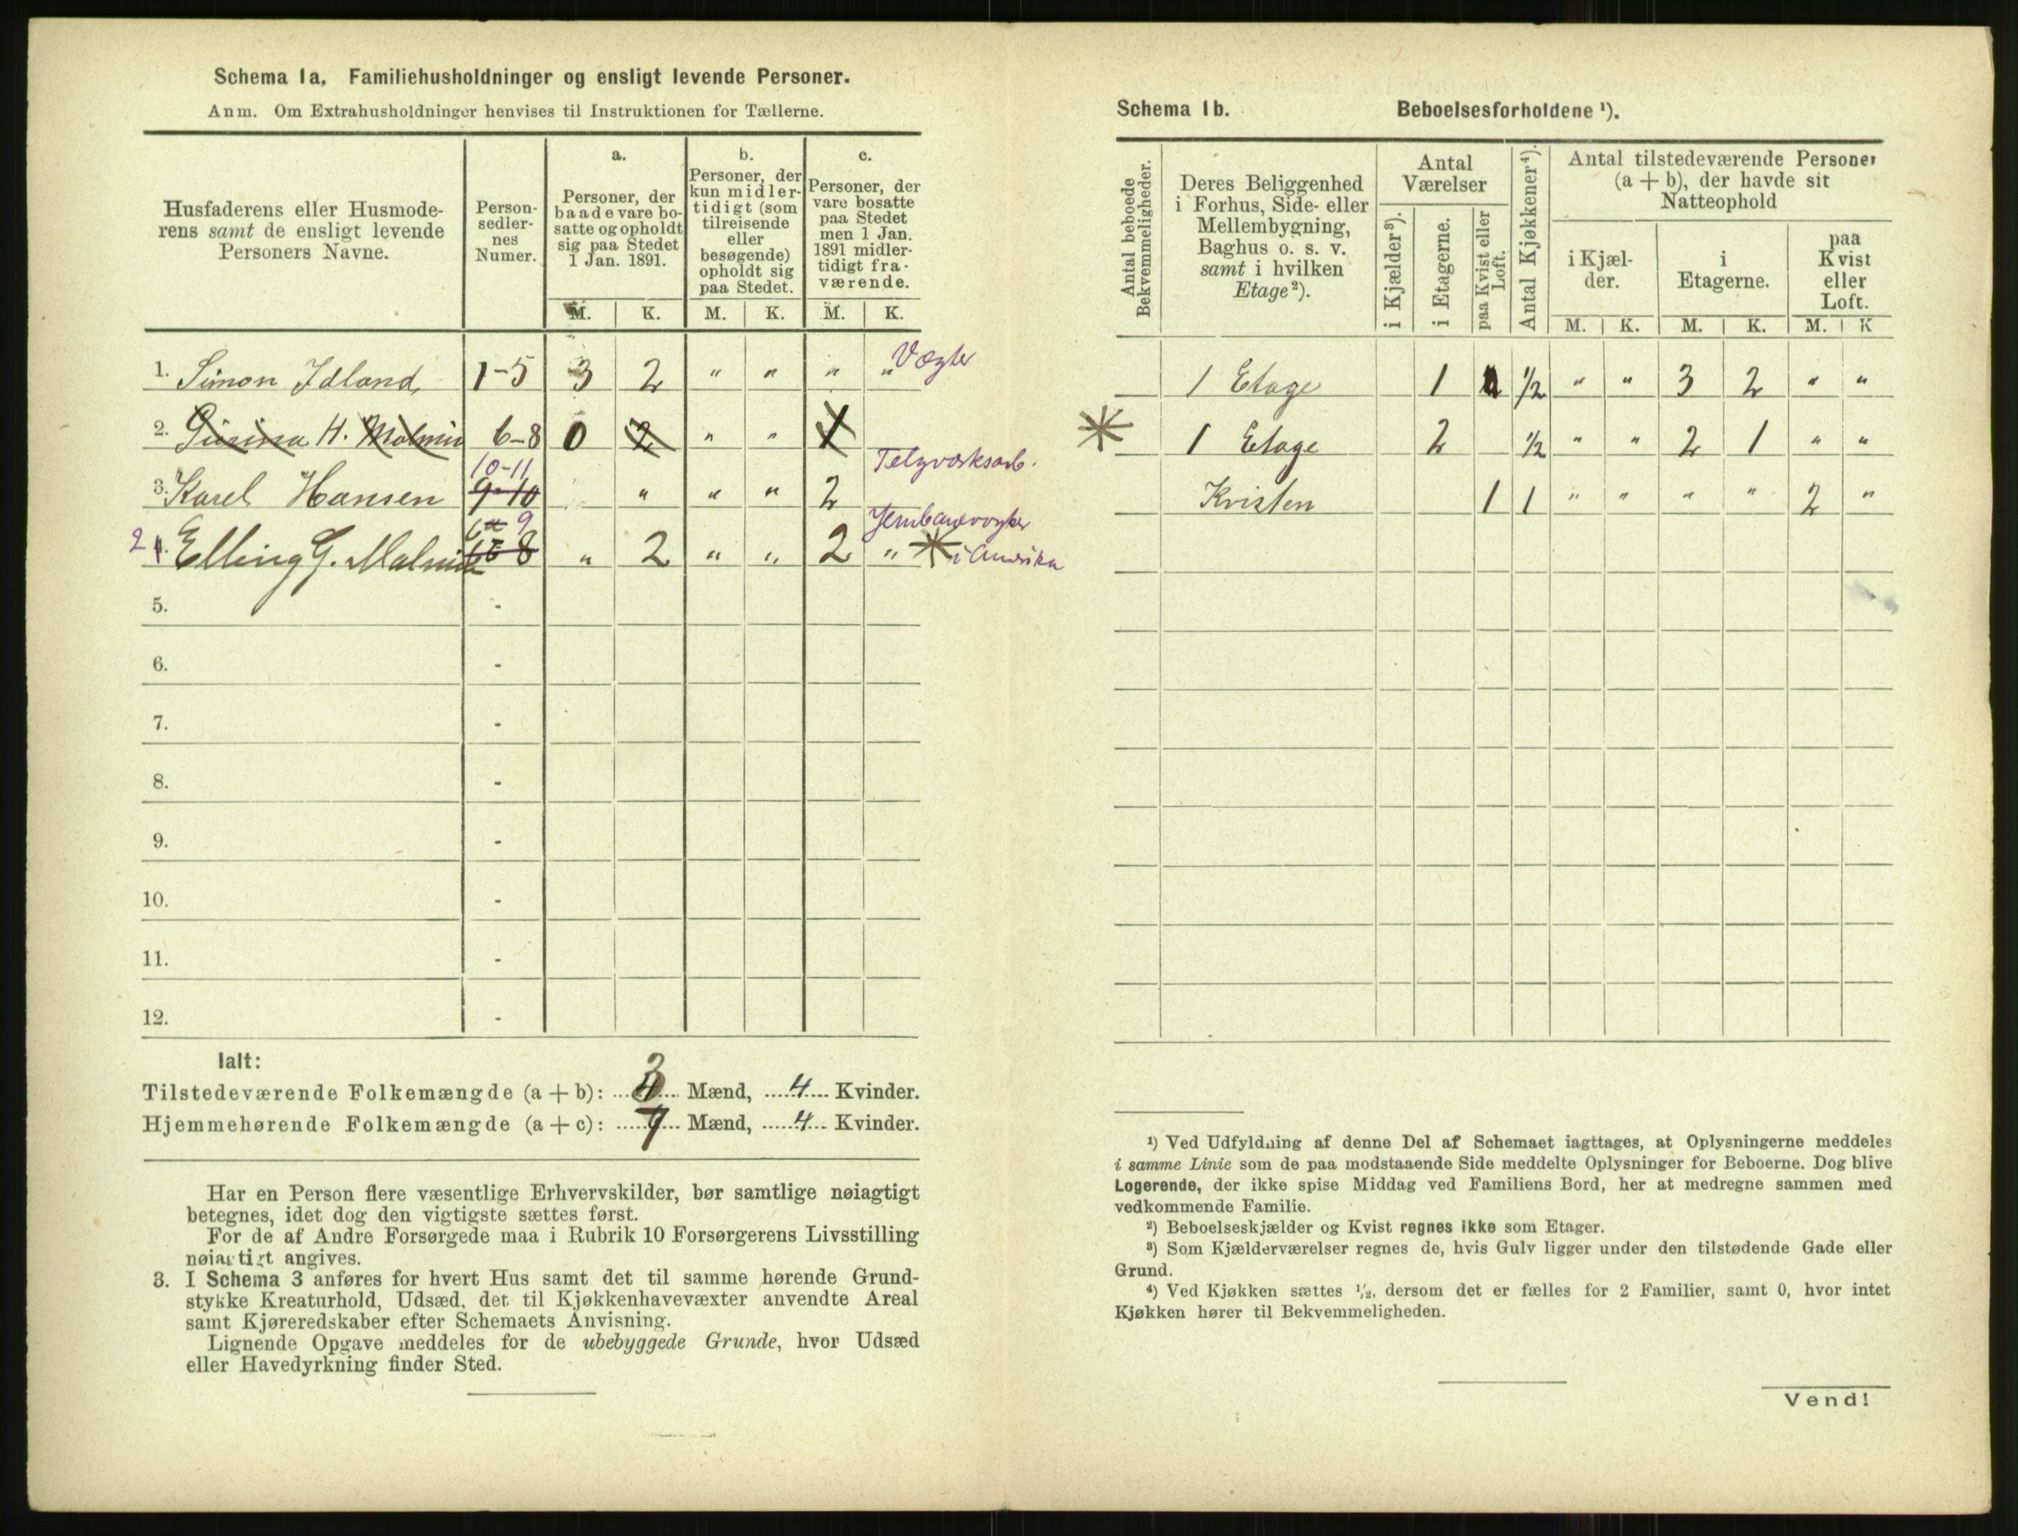 Schema 1a. Familiehusholdninger og ensligt levende Personer.
Anm. Om Extrahusholdninger henvises til Instruktionen for Tællerne.
Husfaderens eller Husmode-
rens samt de ensligt levende
Personers Navne.
Person-
sedler-
nes
Numer.
a.
Personer, der
baade vare bo-
satte og opholdt
sig paa Stedet
1 Jan. 1891.
b.
Personer, der
kun midler-
tidigt (som
tilreisende
eller
besøgende)
opholdt sig
paa Stedet.
c.
Personer, der
vare bosatte
paa Stedet
men 1 Jan.
1891 midler-
tidigt fra-
værende.
M. K. M. K. M. K.
1. Simon Idland, 1-5 3 2 " " " " Vægter
2. H. Malmin 6-8 0 2 " " 1
3. Karel Hansen 9-10 10-11 " " " 2
2 4. Elling G. Malmin 6-8 9 " 2 " " 2 " i Amerika
5. -
6. -
7. -
8. -
9. -
10. -
11. -
12. -
Ialt:
Tilstedeværende Folkemængde (a + b): 3 Mænd, 4 Kvinder.
Hjemmehørende Folkemængde (a + c): 7 Mænd, 4 Kvinder.
Har en Person flere væsentlige Erhvervskilder, bør samtlige nøiagtigt
betegnes, idet dog den vigtigste sættes først.
For de af Andre Forsørgede maa i Rubrik 10 Forsørgerens Livsstilling
nøiagtigt angives.
3. I Schema 3 anføres for hvert Hus samt det til samme hørende Grund-
stykke Kreaturhold, Udsæd, det til Kjøkkenhavevæxter anvendte Areal
samt Kjøreredskaber efter Schemaets Anvisning.
Lignende Opgave meddeles for de ubebyggede Grunde, hvor Udsæd
eller Havedyrkning finder Sted.
Schema 1b. Beboelsesforholdene ¹).
Antal beboede
Bekvemmeligheder.
Deres Beliggenhed
i Forhus, Side- eller
Mellembygning,
Baghus o. s. v.
samt i hvilken
Etage²).
Antal
Værelser
i Kjælder³).
i Etagerne.
paa Kvist eller
Loft.
Antal Kjøkkener⁴).
Antal tilstedeværende Personer
(a + b), der havde sit
Natteophold
i Kjæl-
der.
i
Etagerne.
paa
Kvist
eller
Loft.
M. K. M. K. M. K
1 Etage 1 ½ " " 3 2 " "
1 Etage 2 ½ " " 2 1 " "
Kvisten 1 1 " " " " 2 "
¹) Ved Udfyldning af denne Del af Schemaet iagttages, at Oplysningerne meddeles
i samme Linie som de paa modstaaende Side meddelte Oplysninger for Beboerne. Dog blive
Logerende, der ikke spise Middag ved Familiens Bord, her at medregne sammen med
vedkommende Familie.
²) Beboelseskjælder og Kvist regnes ikke som Etager.
³) Som Kjælderværelser regnes de, hvis Gulv ligger under den tilstødende Gade eller
Grund.
⁴) Ved Kjøkken sættes ½, dersom det er fælles for 2 Familier, samt 0, hvor intet
Kjøkken hører til Bekvemmeligheden.
Vend!